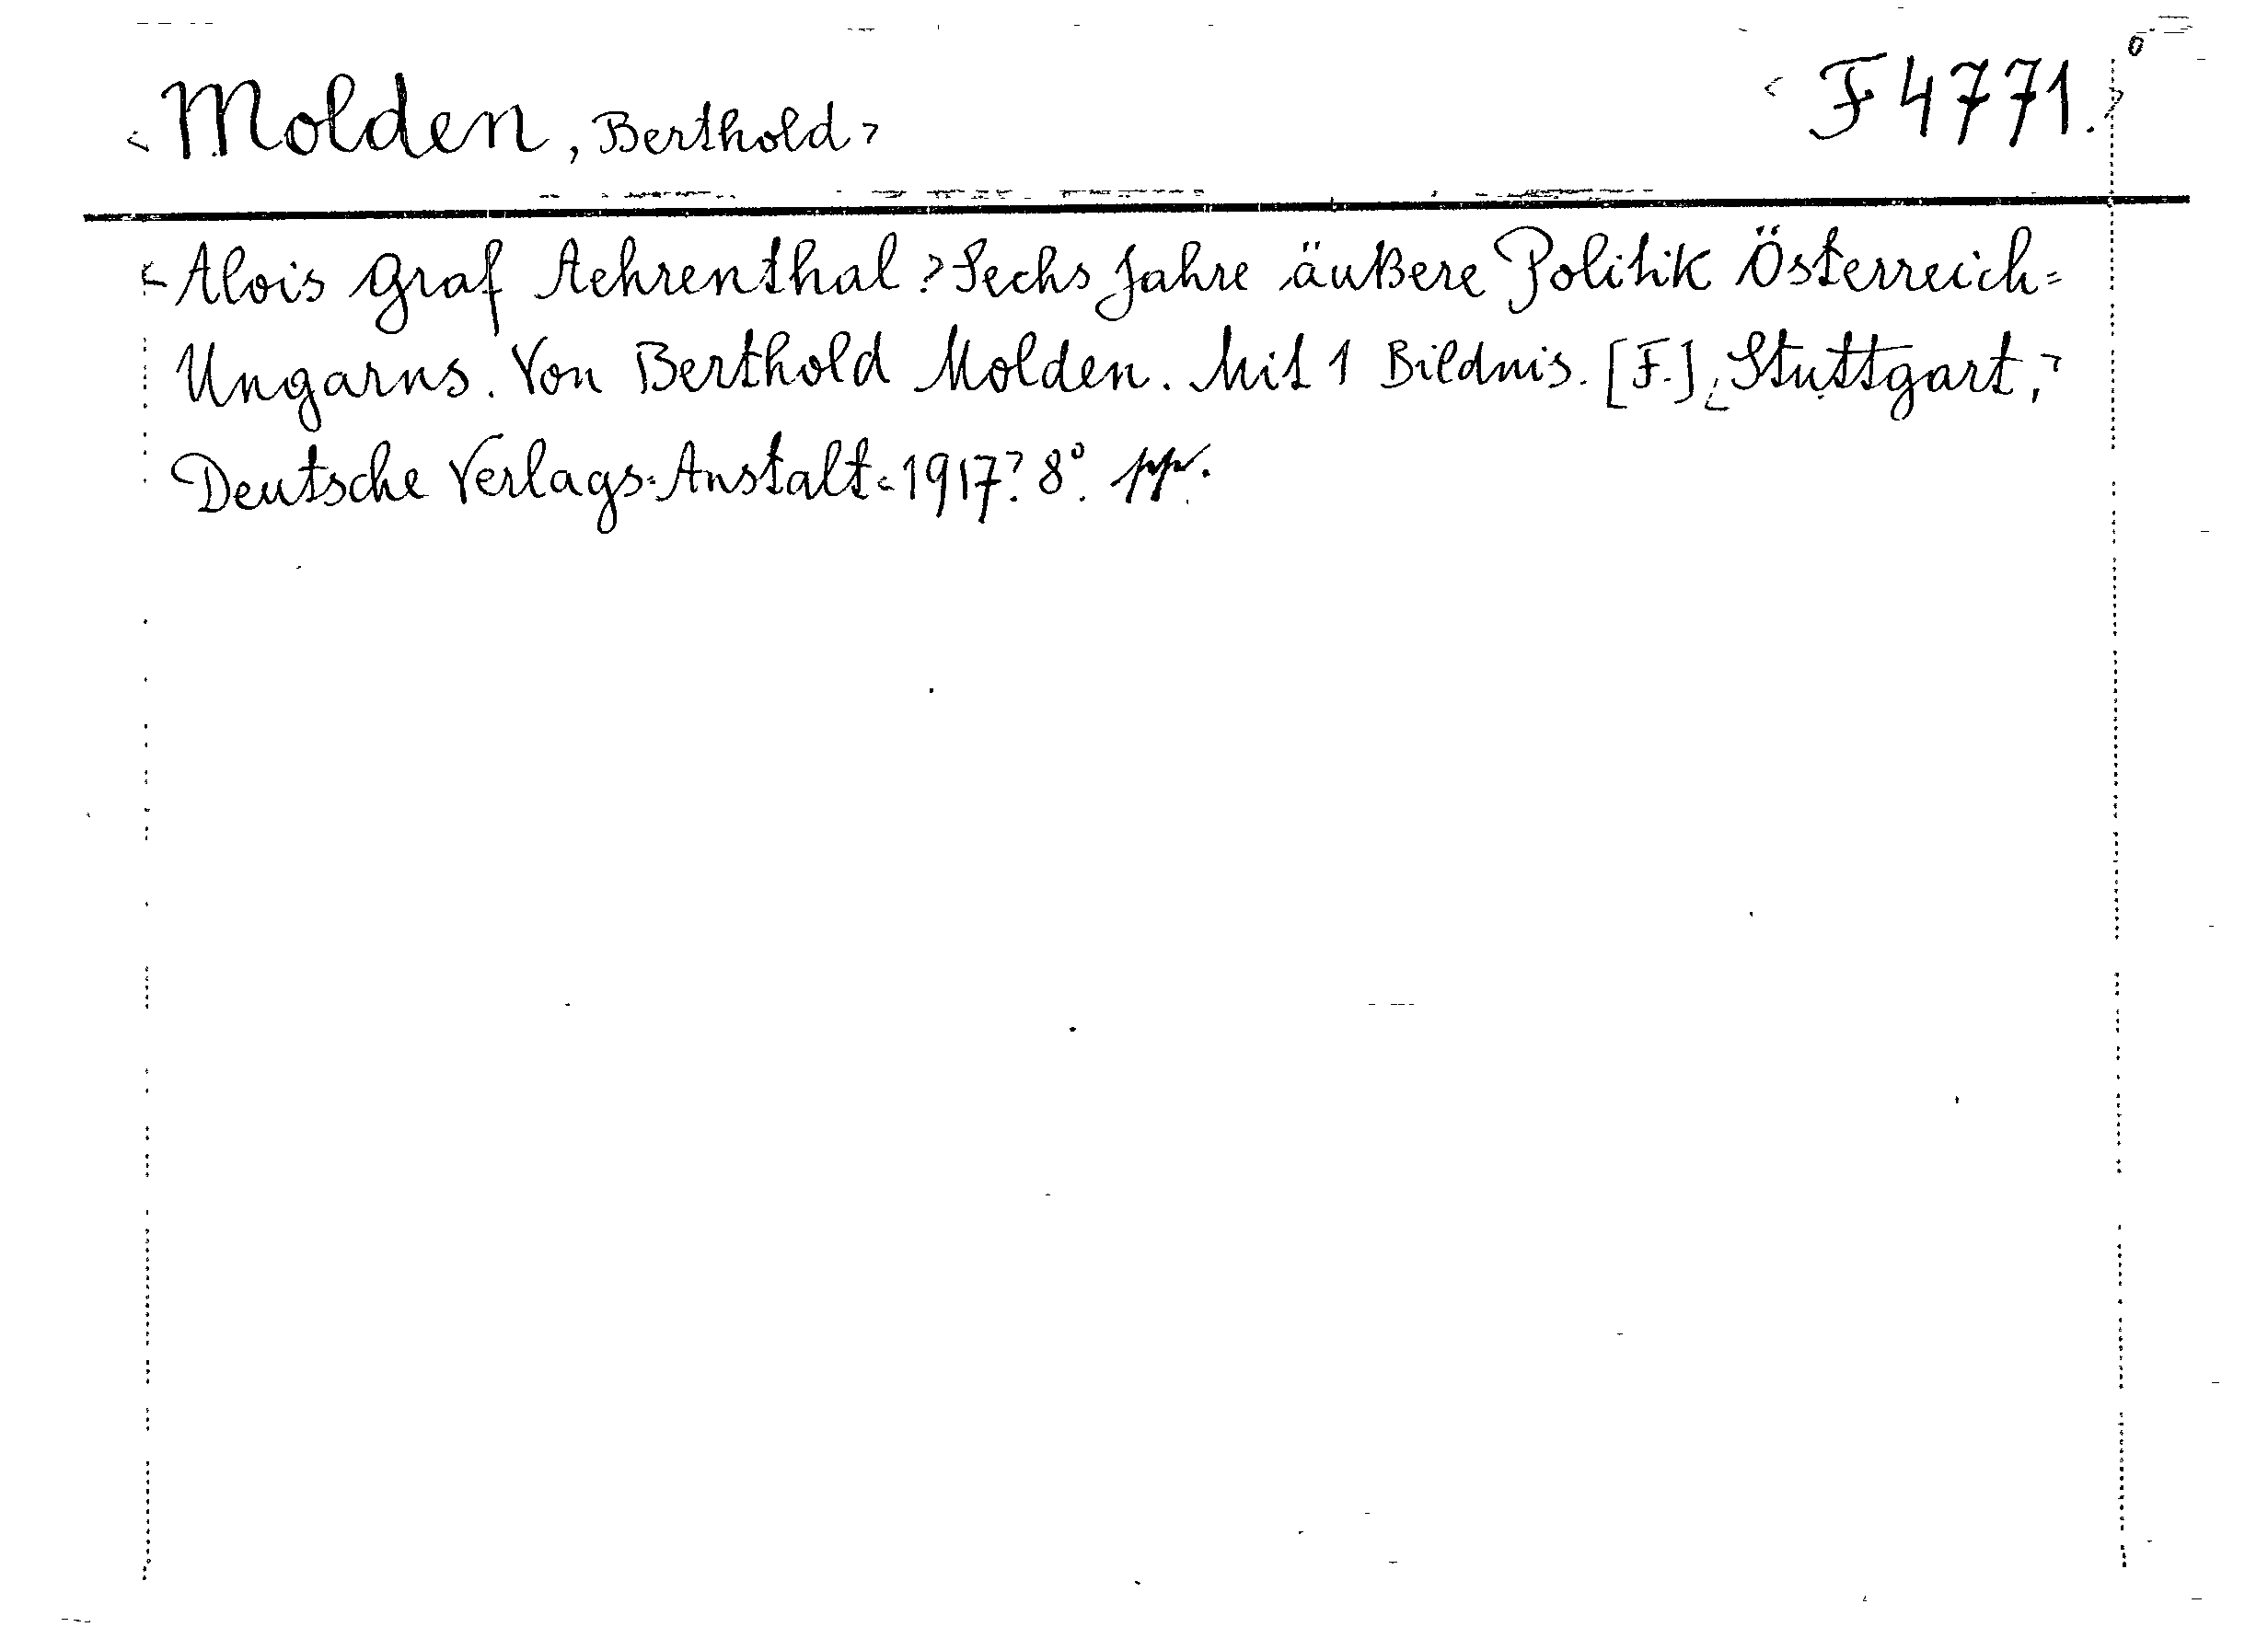 <Molden, Berthold> <F 4771.>
<Alois Graf Aehrenthal.> Sechs Jahre äußere Politik Österreich=
Ungarns. Von Berthold Molden. Mit 1 Bildnis. [F.] <Stuttgart,>
Deutsche Verlags=Anstalt <1917.> 8°. pp.